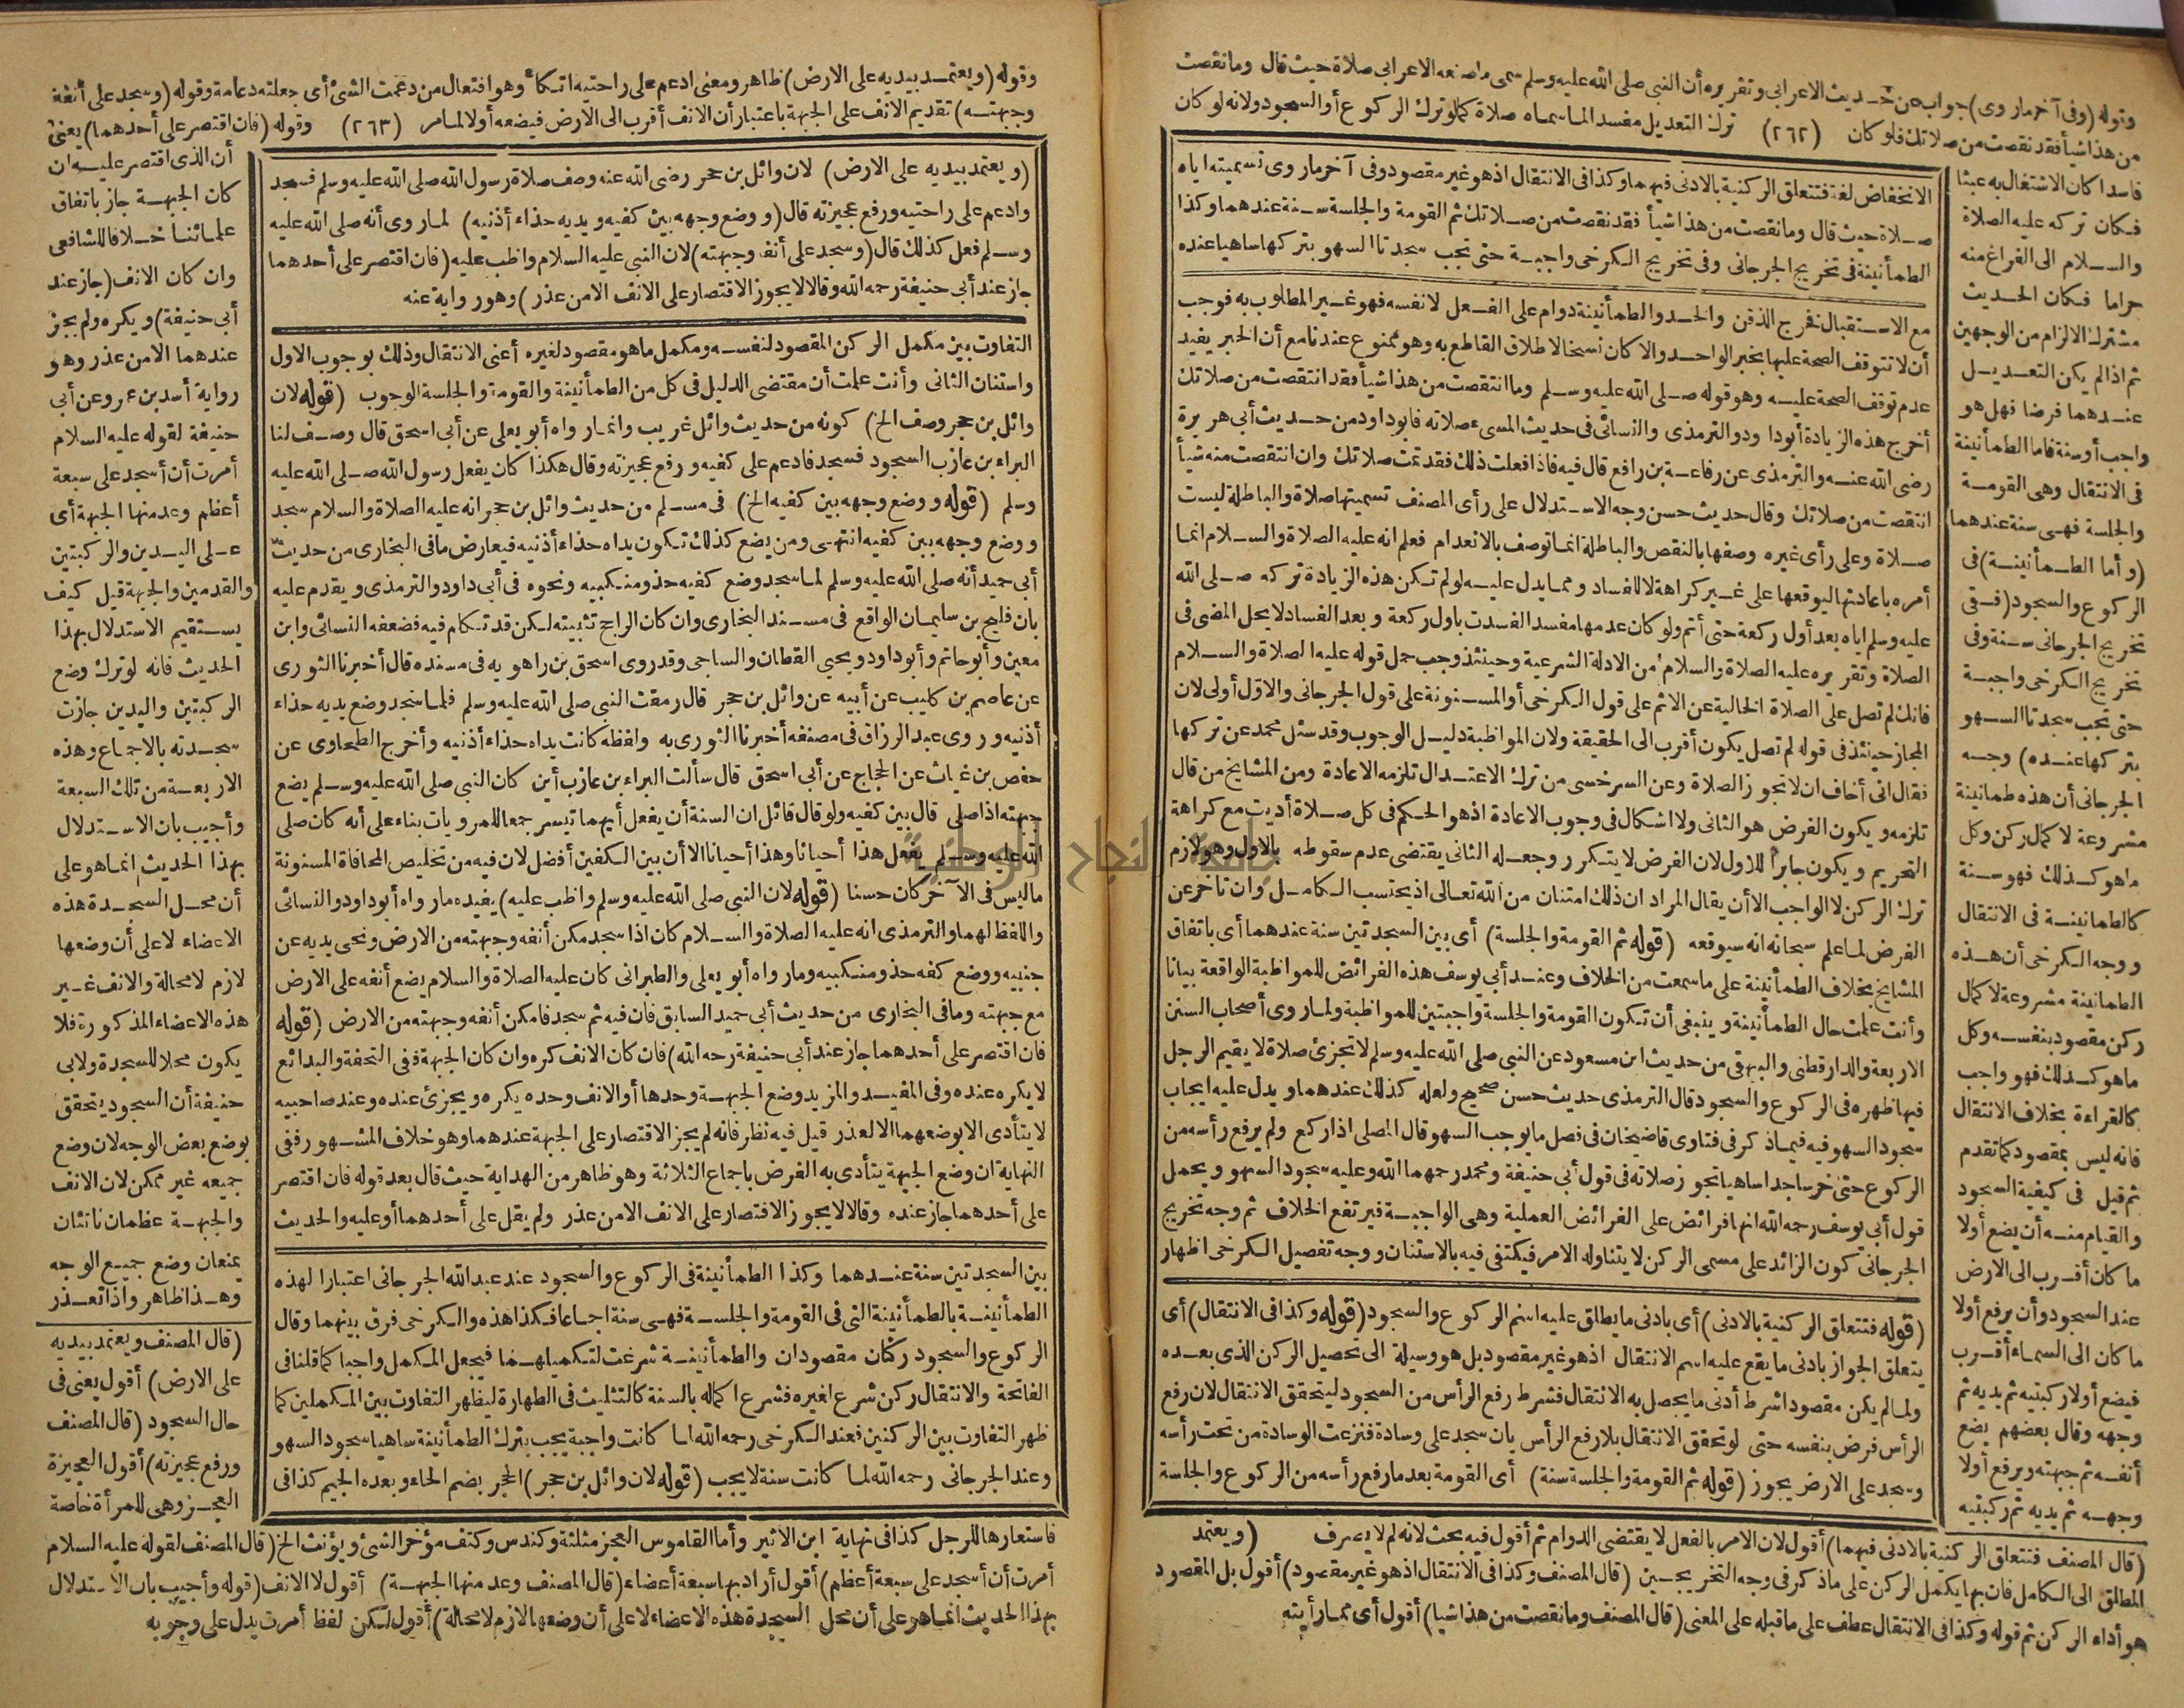 وقوله (وفى آخر ما روى) جواب عن حديث الاعرابى وتقريره أن النبى صلى الله عليه وسلم سمى ما صنعه الاعرابى صلاة حيث قال وما نقصت
من هذا شيأ فقد نقصت من صلاتك فلو كان (٢٦٢) ترك التعديل مفسدا لما سماه صلاة كما لو ترك الركوع أو السجود ولانه لو كان
فاسدا كان الاشتغال به عبثا
فكان تركه عليه الصلاة
والسلام الى الفراغ منه
حراما فكان الحديث
مشترك الالزام من الوجهين
ثم اذا لم يكن التعديل
عندهما فرضا فهل هو
واجب أو سنة فاما الطمأنينة
فى الانتقال وهى القومة
والجلسة فهى سنة عندهما
(وأما الطمأنينة) فى
الركوع والسجود (ففى
تخريج الجرجانى سنة وفى
تخريج الكرخى واجبة
حتى تجب سجدتا السهو
بتركها عنده) وجه
الجرجانى أن هذه طمانينة
مشروعة لا كمال ركن وكل
ما هو كذلك فهو سنة
كالطمانينة فى الانتقال
ووجه الكرخى أن هذه
الطمانينة مشروعة لا كمال
ركن مقصود بنفسه وكل
ما هو كذلك فهو واجب
كالقراءة بخلاف الانتقال
فانه ليس بمقصود كما تقدم
ثم قيل فى كيفية السجود
والقيام منه أن يضع أولا
ما كان أقرب الى الارض
عند السجود وأن يرفع أولا
ما كان الى السماء أقرب
فيضع أولا ركبتيه ثم يديه ثم
وجهه وقال بعضهم يضع
أنفه ثم جبهته ويرفع أولا
وجهه ثم يديه ثم ركبتيه
الانخفاض لغة فتتعلق الركنية بالادنى فيهما وكذا فى الانتقال اذ هو غير مقصود وفى آخر ما روى تسميته اياه
صلاة حيث قال وما نقصت من هذا شيأ فقد نقصت من صلاتك ثم القومة والجلسة سنة عندهما وكذا
الطمأنينة فى تخريج الجرجانى وفى تخريج الكرخى واجبة حتى تجب سجدتا السهو بتركها ساهيا عنده
مع الاستقبال فخرج الذقن والخد والطمأنينة دوام على الفعل لا نفسه فهو غير المطلوب به فوجب
أن لا تتوقف الصحة عليها بخبر الواحد والا كان نسخا لاطلاق القاطع به وهو ممنوع عندنا مع أن الخبر يفيد
عدم توقف الصحة عليه وهو قوله صلى الله عليه وسلم وما انتقصت من هذا شيأ فقد انتقصت من صلاتك
أخرج هذه الزيادة أبو داود والترمذى والنسائى فى حديث المسىء صلاته فابو داود من حديث أبى هريرة
رضى الله عنه والترمذى عن رفاعة بن رافع قال فيه فاذا فعلت ذلك فقد تمت صلاتك وان انتقصت منه شيأ
انتقصت من صلاتك وقال حديث حسن وجه الاستدلال على رأى المصنف تسميتها صلاة والباطلة ليست
صلاة وعلى رأى غيره وصفها بالنقص والباطلة انما توصف بالانعدام فعلم انه عليه الصلاة والسلام انما
أمره باعادتها ليوقعها على غير كراهة لا للفساد ومما يدل عليه لو لم تكن هذه الزيادة تركه صلى الله
عليه وسلم اياه بعد أول ركعة حتى أتم ولو كان عدمها مفسدا لفسدت باول ركعة وبعد الفساد لا يحل المضى فى
الصلاة وتقريره عليه الصلاة والسلام من الادلة الشرعية وحينئذ وجب حمل قوله عليه الصلاة والسلام
فانك لم تصل على الصلاة الخالية عن الاثم على قول الكرخى أو المسنونة على قول الجرجانى والاول أولى لان
المجاز حينئذ فى قوله لم تصل يكون أقرب الى الحقيقة ولان المواظبة دليل الوجوب وقد سئل محمد عن تركها
فقال انى أخاف ان لا تجوز الصلاة وعن السرخسى من ترك الاعتدال تلزمه الاعادة ومن المشايخ من قال
تلزمه ويكون الفرض هو الثانى ولا اشكال فى وجوب الاعادة اذ هو الحكم فى كل صلاة أديت مع كراهة
التحريم ويكون جابرا للاول لان الفرض لا يتكرر وجعله الثانى يقتضى عدم سقوطه بالاول وهو لازم
ترك الركن لا الواجب الا أن يقال المراد ان ذلك امتنان من الله تعالى اذ يحتسب الكامل وان تأخر عن
الفرض لما علم سبحانه انه سيوقعه (قوله ثم القومة والجلسة) أى بين السجدتين سنة عندهما أى باتفاق
المشايخ بخلاف الطمأنينة على ما سمعت من الخلاف وعند أبى يوسف هذه الفرائض للمواظبة الواقعة بيانا
وأنت علمت حال الطمأنينة وينبغى أن تكون القومة والجلسة واجبتين للمواظبة ولما روى أصحاب السنن
الاربعة والدارقطنى والبيهقى من حديث ابن مسعود عن النبى صلى الله عليه وسلم لا تجزئ صلاة لا يقيم الرجل
فيها ظهره فى الركوع والسجود قال الترمذى حديث حسن صحيح ولعله كذلك عندهما ويدل عليه ايجاب
سجود السهو فيه فيما ذكر فى فتاوى قاضيخان فى فصل ما يوجب السهو قال المصلى اذا ركع ولم يرفع رأسه من
الركوع حتى خر ساجدا ساهيا تجوز صلاته فى قول أبى حنيفة ومحمد رحمهما الله وعليه سجود السهو ويحمل
قول أبى يوسف رحمه الله انها فرائض على الفرائض العملية وهى الواجبة فيرتفع الخلاف ثم وجه تخريج
الجرجانى كون الزائد على مسمى الركن لا يتناوله الامر فيكتفى فيه بالاستنان ووجه تفصيل الكرخى اظهار
(قوله فتتعلق الركنية بالادنى) أى بادنى ما يطلق عليه اسم الركوع والسجود (قوله وكذا فى الانتقال) أى
يتعلق الجواز بادنى ما يقع عليه اسم الانتقال اذ هو غير مقصود بل هو وسيلة الى تحصيل الركن الذى بعده
ولما لم يكن مقصودا شرط أدنى ما يحصل به الانتقال فشرط رفع الرأس من السجود ليتحقق الانتقال لان رفع
الرأس فرض بنفسه حتى لو تحقق الانتقال بلا رفع الرأس بان سجد على وسادة فنزعت الوسادة من تحت رأسه
وسجد على الارض يجوز (قوله ثم القومة والجلسة سنة) أى القومة بعد ما رفع رأسه من الركوع والجلسة
(قال المصنف فتتعلق الركنية بالادنى فيهما) أقول لان الامر بالفعل لا يقتضى الدوام ثم أقول فيه بحث لانه لم لا يصرف (ويعتمد
المطلق الى الكامل فان بها يكمل الركن على ما ذكر فى وجه التخريجين (قال المصنف وكذا فى الانتقال اذ هو غير مقصود) أقول بل المقصود
هو أداء الركن ثم قوله وكذا فى الانتقال عطف على ما قبله على المعنى (قال المصنف وما نقصت من هذا شيا) أقول أى مما رأيته
وقوله (ويعتمد بيديه على الارض) ظاهر ومعنى ادعم على راحتيه اتكأ وهو افتعال من دعمت الشئ أى جعلته دعامة وقوله (وسجد على أنفه
وجبهته) تقديم الانف على الجبهة باعتبار أن الانف أقرب الى الارض فيضعه أولا لما مر (٢٦٣) وقوله (فان اقتصر على أحدهما) يعنى
(ويعتمد بيديه على الارض) لان وائل بن حجر رضى الله عنه وصف صلاة رسول الله صلى الله عليه وسلم فسجد
وادعم على راحتيه ورفع عجيزته قال (ووضع وجهه بين كفيه ويديه حذاء أذنيه) لما روى أنه صلى الله عليه
وسلم فعل كذلك قال (وسجد على أنفه وجبهته) لان النبى عليه السلام واظب عليه (فان اقتصر على أحدهما
جاز عند أبى حنيفة رحمه الله وقالا لا يجوز الاقتصار على الانف الا من عذر) وهو رواية عنه
التفاوت بين مكمل الركن المقصود لنفسه ومكمل ما هو مقصود لغيره أعنى الانتقال وذلك بوجوب الاول
واستنان الثانى وأنت علمت أن مقتضى الدليل فى كل من الطمأنينة والقومة والجلسة الوجوب (قوله لان
وائل بن حجر وصف الخ) كونه من حديث وائل غريب وانما رواه أبو يعلى عن أبى اسحق قال وصف لنا
البراء بن عازب السجود فسجد فادعم على كفيه ورفع عجيزته وقال هكذا كان يفعل رسول الله صلى الله عليه
وسلم (قوله ووضع وجهه بين كفيه الخ) فى مسلم من حديث وائل بن حجر انه عليه الصلاة والسلام سجد
ووضع وجهه بين كفيه انتهى ومن يضع كذلك تكون يداه حذاء أذنيه فيعارض ما فى البخارى من حديث
أبى حميد أنه صلى الله عليه وسلم لما سجد وضع كفيه حذو منكبيه ونحوه فى أبى داود والترمذى ويقدم عليه
بان فليح بن سليمان الواقع فى مسند البخارى وان كان الراجح تثبيته لكن قد تكلم فيه فضعفه النسائى وابن
معين وأبو حاتم وأبو داود ويحيى القطان والساجى وقد روى اسحق بن راهويه فى مسنده قال أخبرنا الثورى
عن عاصم بن كليب عن أبيه عن وائل بن حجر قال رمقت النبى صلى الله عليه وسلم فلما سجد وضع يديه حذاء
أذنيه وروى عبد الرزاق فى مصنفه أخبرنا الثورى به ولفظه كانت يداه حذاء أذنيه وأخرج الطحاوى عن
حفص بن غياث عن الحجاج عن أبى اسحق قال سألت البراء بن عازب أين كان النبى صلى الله عليه وسلم يضع
جبهته اذا صلى قال بين كفيه ولو قال قائل ان السنة أن يفعل أيهما تيسر جمعا للمرويات بناء على أنه كان صلى
الله عليه وسلم يفعل هذا أحيانا وهذا أحيانا الا أن بين الكفين أفضل لان فيه من تخليص المحافاة المسنونة
ما ليس فى الآخر كان حسنا (قوله لان النبى صلى الله عليه وسلم واظب عليه) يفيده ما رواه أبو داود والنسائى
واللفظ لهما والترمذى انه عليه الصلاة والسلام كان اذا سجد مكن أنفه وجبهته من الارض ونحى يديه عن
جنبيه ووضع كفه حذو منكبيه وما رواه أبو يعلى والطبرانى كان عليه الصلاة والسلام يضع أنفه على الارض
مع جبهته وما فى البخارى من حديث أبى حميد السابق فان فيه ثم سجد فامكن أنفه وجبهته من الارض (قوله
فان اقتصر على أحدهما جاز عند أبى حنيفة رحه الله) فان كان الانف كره وان كان الجبهة ففى التحفة والبدائع
لا يكره عنده وفى المفيد والمزيد وضع الجبهة وحدها أو الانف وحده يكره ويجزئ عنده وعند صاحبيه
لا يتأدى الا بوضعهما الا لعذر قيل فيه نظر فانه لم يجز الاقتصار على الجبهة عندهما وهو خلاف المشهور ففى
النهاية ان وضع الجبهة يتأدى به الفرض باجماع الثلاثة وهو ظاهر من الهداية حيث قال بعد قوله فان اقتصر
على أحدهما جاز عنده وقالا لا يجوز الاقتصار على الانف الا من عذر ولم يقل على أحدهما أو عليه والحديث
بين السجدتين سنة عندهما وكذا الطمأنينة فى الركوع والسجود عند عبد الله الجرجانى اعتبارا لهذه
الطمأنينة بالطمأنينة التى فى القومة والجلسة فهى سنة اجماعا فكذا هذه والكرخى فرق بينهما وقال
الركوع والسجود ركنان مقصودان والطمأنينة شرعت لتكميلهما فيجعل المكمل واجبا كما قلنا فى
الفاتحة والانتقال ركن شرع لغيره فشرع اكماله بالسنة كالتثليث فى الطهارة ليظهر التفاوت بين المكملين كما
ظهر التفاوت بين الركنين فعند الكرخى رحمه الله لما كانت واجبة يجب بترك الطمأنينة ساهيا سجود السهو
وعند الجرجانى رحمه الله لما كانت سنة لا يجب (قوله لان وائل بن حجر) الحجر بضم الحاء وبعده الجيم كذا فى
أن الذى اقتصر عليه ان
كان الجبهة جاز باتفاق
علمائنا خلافا للشافعى
وان كان الانف (جاز عند
أبى حنيفة) ويكره ولم يجز
عندهما الا من عذر وهو
رواية أسد بن عمرو عن أبى
حنيفة لقوله عليه السلام
أمرت أن أسجد على سبعة
أعظم وعد منها الجبهة أى
على اليدين والركبتين
والقدمين والجبهة قيل كيف
يستقيم الاستدلال بهذا
الحديث فانه لو ترك وضع
الركبتين واليدين جازت
سجدته بالاجماع وهذه
الاربعة من تلك السبعة
وأجيب بان الاستدلال
بهذا الحديث انما هو على
أن محل السجدة هذه
الاعضاء لا على أن وضعها
لازم لا محالة والانف غير
هذه الاعضاء المذكورة فلا
يكون محلا للسجدة ولابى
حنيفة أن السجود يتحقق
بوضع بعض الوجه لان وضع
جميعه غير ممكن لان الانف
والجبهة عظمان ناتئان
يمنعان وضع جميع الوجه
وهذا ظاهر واذا تعذر
(قال المصنف ويعتمد بيديه
على الارض) أقول يعنى فى
حال السجود (قال المصنف
ورفع عجيزته) أقول العجيزة
العجز وهى للمرأة خاصة
فاستعارها للرجل كذا فى نهاية ابن الاثير وأما القاموس العجز مثلثة وكندس وكتف مؤخر الشئ ويؤنث الخ (قال المصنف لقوله عليه السلام
أمرت أن أسجد على سبعة أعظم) أقول أراد بها سبعة أعضاء (قال المصنف وعد منها الجبهة) أقول لا الانف (قوله وأجيب بان الاستدلال
بهذا الحديث انما هو على أن محل السجدة هذه الاعضاء لا على أن وضعها لازم لا محالة) أقول لكن لفظ أمرت يدل على وجوبه
جامعة النجاح الوطنية